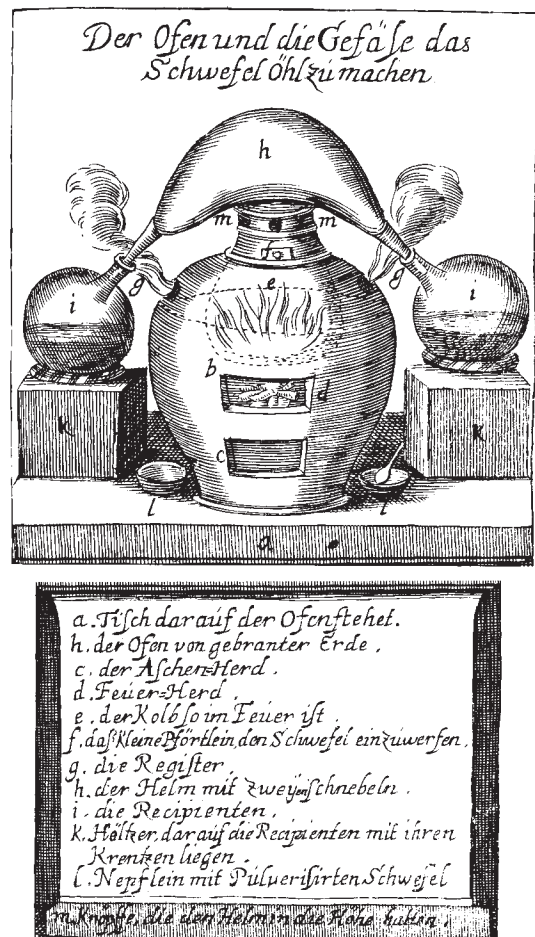 Der Ofen und die Gefäſe das
Schwefel Öhl zu machen
h
m m
f
g g
e
i i
b
d
k k
c
l l
a
a. Tiſch darauf der Ofen ſtehet.
h. der Ofen von gebranter Erde.
c. der Aſchen=Herd.
d. Feüer=Herd.
e. der Kolb ſo im Feüer iſt.
f. daſ kleine Pförtlein, den Schwefel einzuwerfen.
g. die Regiſter
h. der Helm mit zweÿen ſchnebeln.
i. die Recipienten.
k. Höltzer, darauf die Recipienten mit ihren
Krentzen liegen.
l. Nepflein mit Pulveriſirten Schwefel
m. Knöpffe, die den Helm in die Höhe halten.